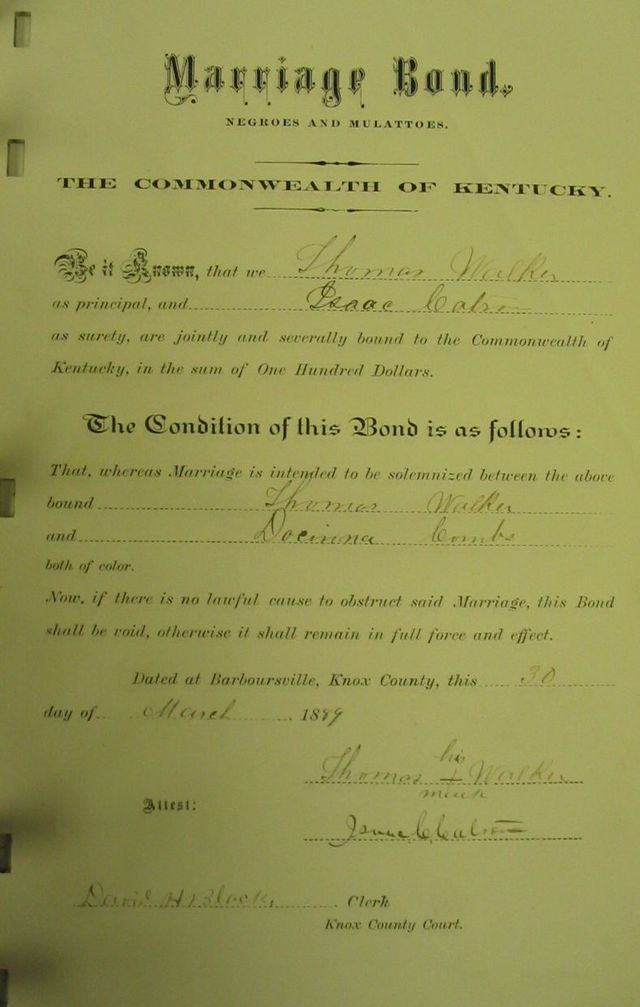 Marriage Bond.
NEGROES AND MULATTOES.
THE COMMONWEALTH OF KENTUCKY.
Be it Known, that we Thomas Walker
as principal, and Isaac
as surety, are jointly and severally bound to the Commonwealth of
Kentucky, in the sum of One Hundred Dollars.
The Condition of this Bond is as follows:
That, whereas Marriage is intended to be solemnized between the above
bound Thomas Walker
and Docinna Combs
both of color.
Now, if there is no lawful cause to obstruct said Marriage, this Bond
shall be void, otherwise it shall remain in full force and effect.
Dated at Barboursville, Knox County, this 30
day of March 1889
his
Thomas + Walker
mark
Attest:
David H Clerk
Knox County Court.